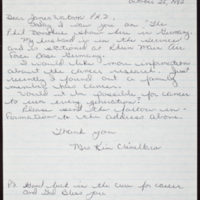 October 25, 1982
Dear James Watson P.H.D.,
Today I saw you on "The
Phil Donahue show" here in Germany.
My husband is in the service
and is stationed at Rhein Main Air
Force Base Germany.
I would like more information
about the cancer research. Just
recently I found out a family
member has cancer.
Would it be possible for cancer
to run every generation?
Please send the follow in-
formation to the address above.
Thank you
Mrs Kim
Ps Good luck in the cure for cancer
and God Bless you